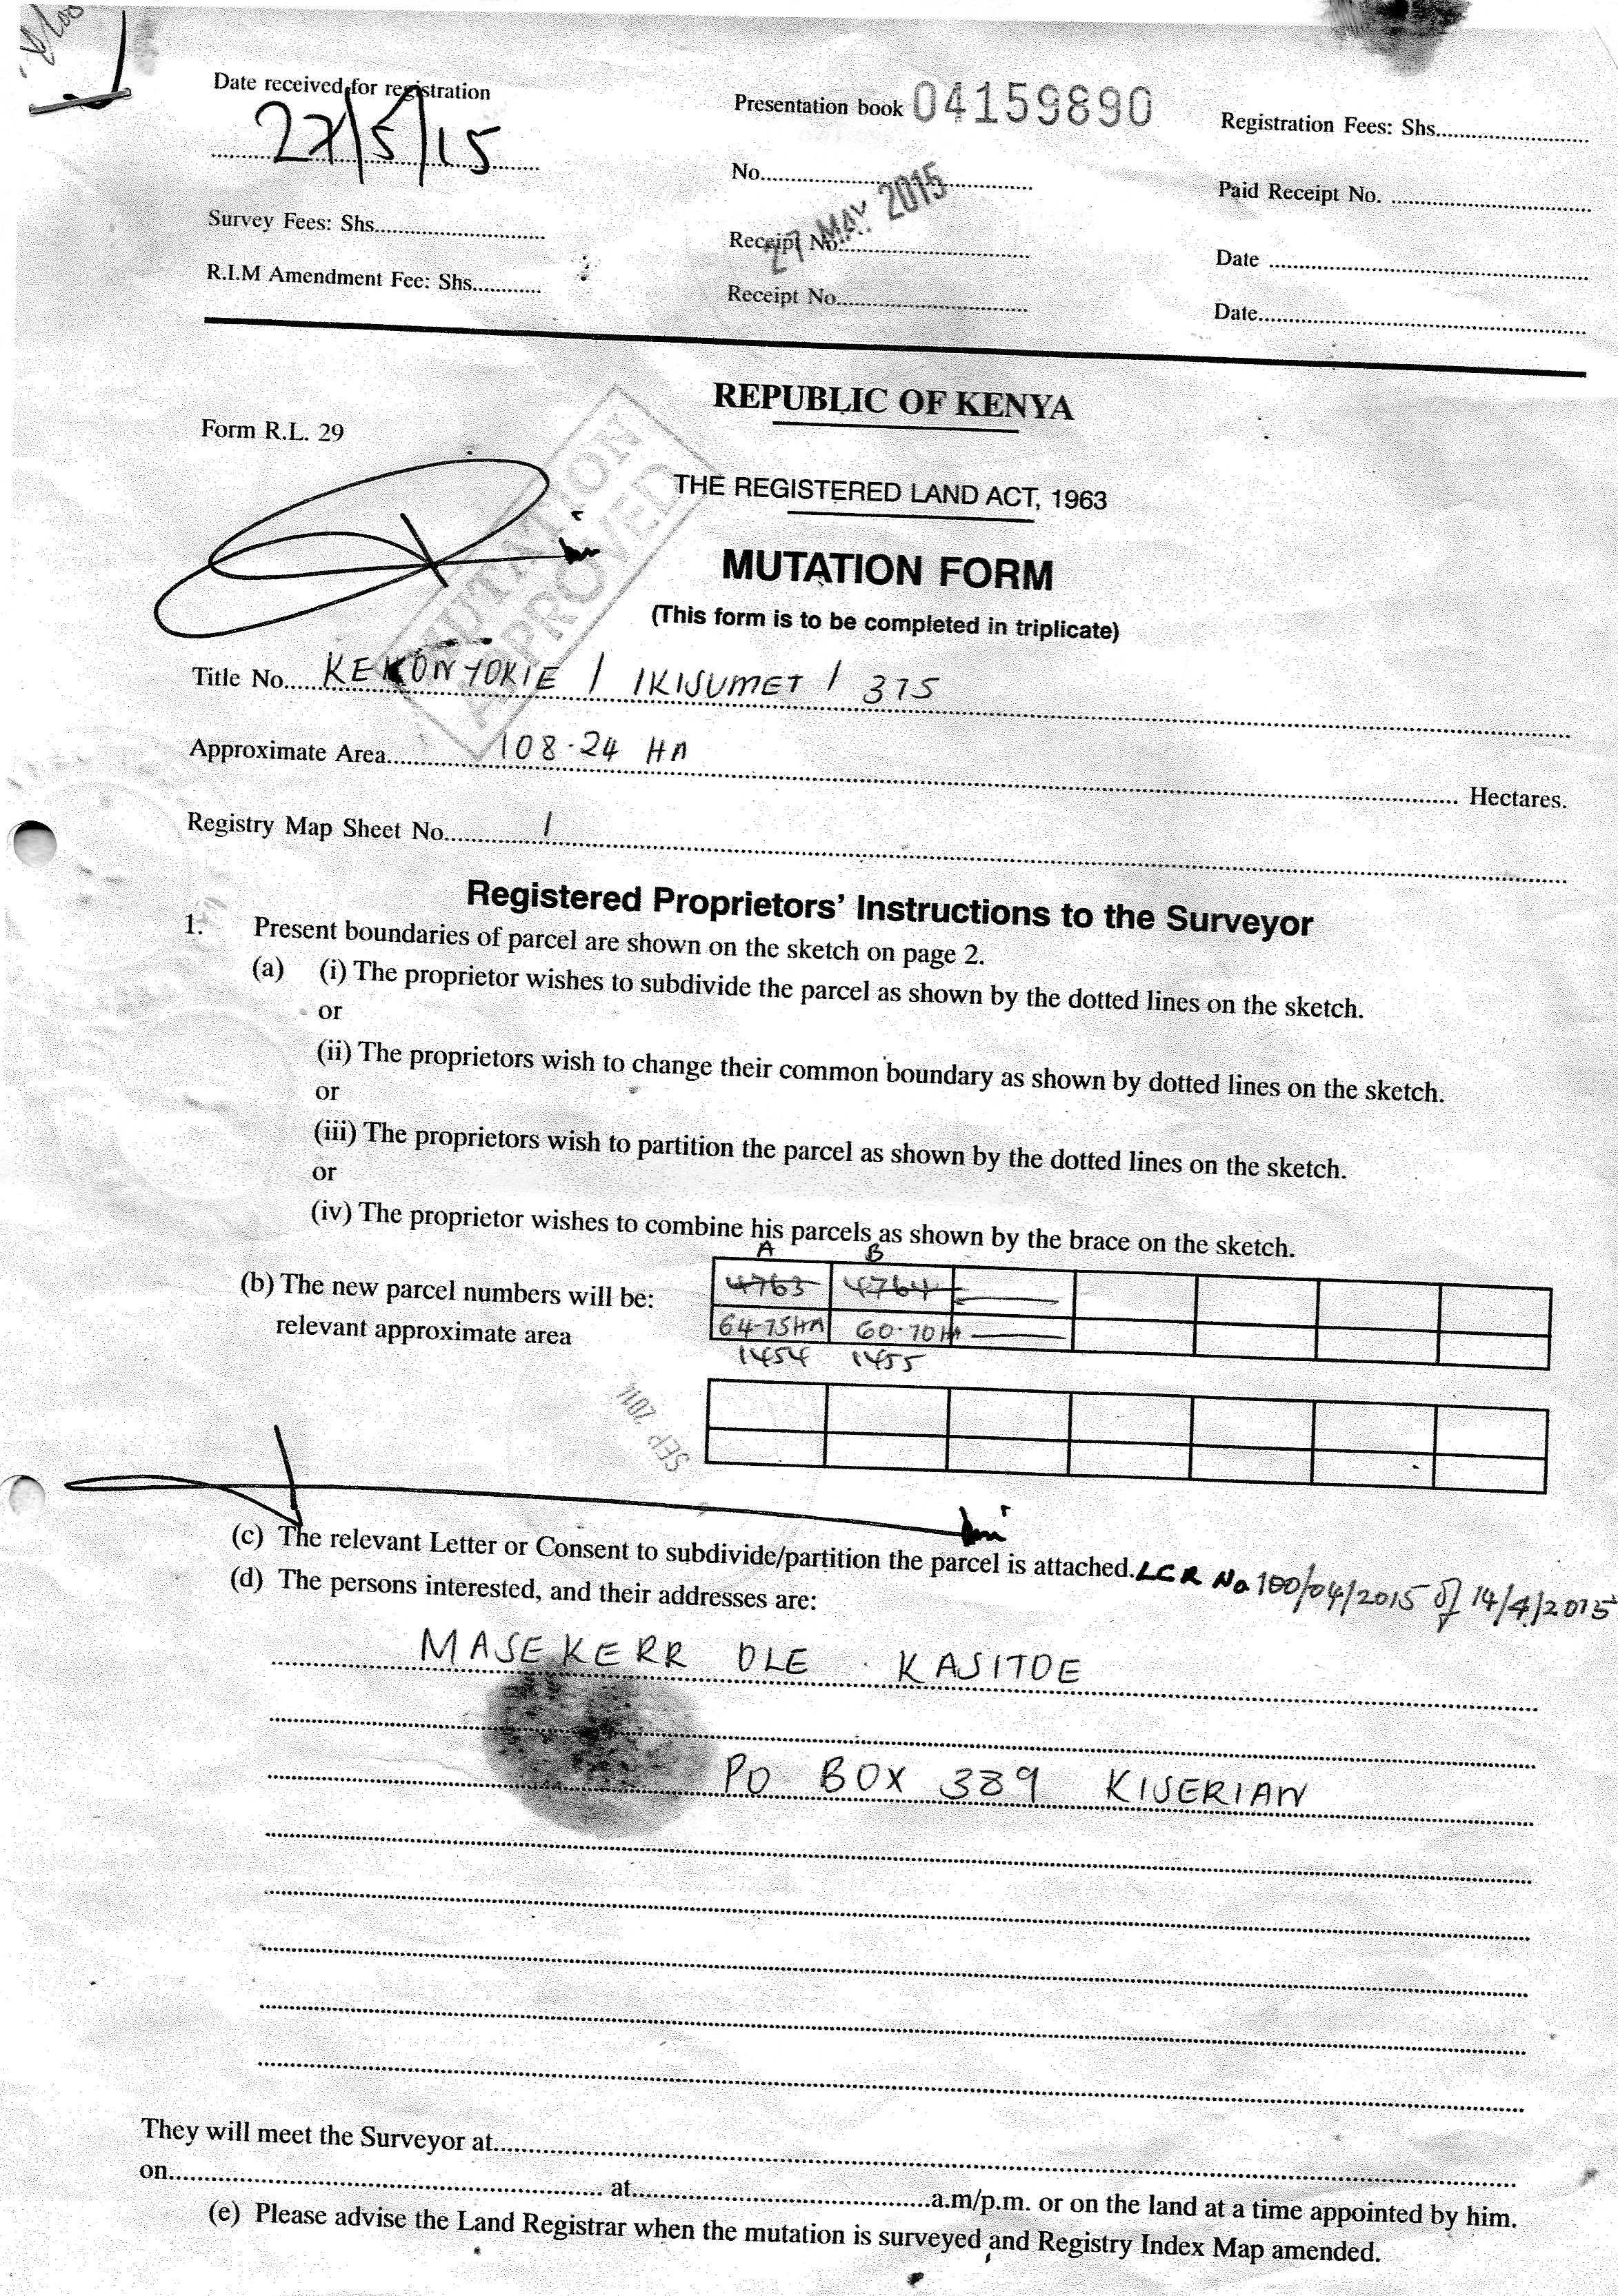 Date received for registration
27/5/15
Survey Fees: Shs
R.I.M Amendment Fee: Shs
Presentation book 04159890
No
27 MAY 2015
Receipt No
Receipt No
Registration Fees: Shs
Paid Receipt No.
Date
Date
REPUBLIC OF KENYA
Form R.L. 29
THE REGISTERED LAND ACT, 1963
MUTATION APPROVED
MUTATION FORM
(This form is to be completed in triplicate)
Title No KEKONYOKIE / IKISUMET / 375
Approximate Area 108.24 HA Hectares.
Registry Map Sheet No 1
Registered Proprietors' Instructions to the Surveyor
1. Present boundaries of parcel are shown on the sketch on page 2.
(a) (i) The proprietor wishes to subdivide the parcel as shown by the dotted lines on the sketch.
or
(ii) The proprietors wish to change their common boundary as shown by dotted lines on the sketch.
or
(iii) The proprietors wish to partition the parcel as shown by the dotted lines on the sketch.
or
(iv) The proprietor wishes to combine his parcels as shown by the brace on the sketch.
A B
(b) The new parcel numbers will be: 4763 4764
relevant approximate area 64-75HA 60-70HA
1454 1455
SEP 2014
(c) The relevant Letter or Consent to subdivide/partition the parcel is attached. LCR No 100/04/2015 of 14/4/2015
(d) The persons interested, and their addresses are:
MASEKERR OLE KASITOE
PO BOX 389 KISERIAN
They will meet the Surveyor at
on at a.m/p.m. or on the land at a time appointed by him.
(e) Please advise the Land Registrar when the mutation is surveyed and Registry Index Map amended.